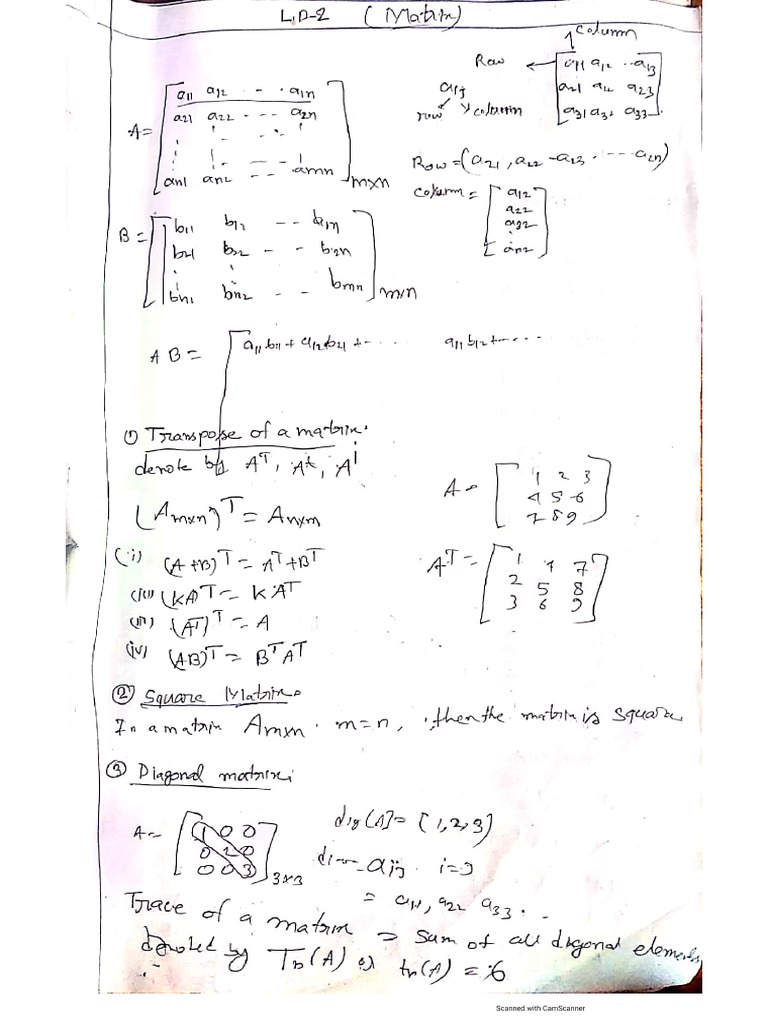 L.D-2 (Matrix)
Column
Row
a11 a12 ..a13
a21 a22 a23
a31 a32 a33
aij
row column
A =
a11 a12 - - . a1n
a21 a22 - - - a2n
an1 an2 - - amn
mxn
Row = (a21, a22 - a23 . - - - a2n)
Column =
a12
a22
a32
an2
B =
b11 b12 - - b1n
b21 b22 - - b2n
bn1 bn2 - - bmn
mxn
AB = a11 b11 + a12 b21 + - . . . . a11 b12 + - . . . .
① Transpose of a matrix.
denote by A^T, A^t, A^|
(Amxn)^T = Anxm
A =
1 2 3
4 5 6
7 8 9
(i) (A+B)^T = A^T+B^T
(ii) (KA)^T = KA^T
(iii) (A^T)^T = A
(iv) (AB)^T = B^T A^T
A^T =
1 4 7
2 5 8
3 6 9
② Square Matrix.
In a matrix Amxn . m=n, then the matrix is square
③ Diagonal matrix:
A =
1 0 0
0 2 0
0 0 3
3x3
dig(A) = [1,2,3]
aij i=j
= a11, a22 a33 . . .
Trace of a matrix = sum of all diagonal elements
denoted by Tr(A) or tr(A) = 6
Scanned with CamScanner